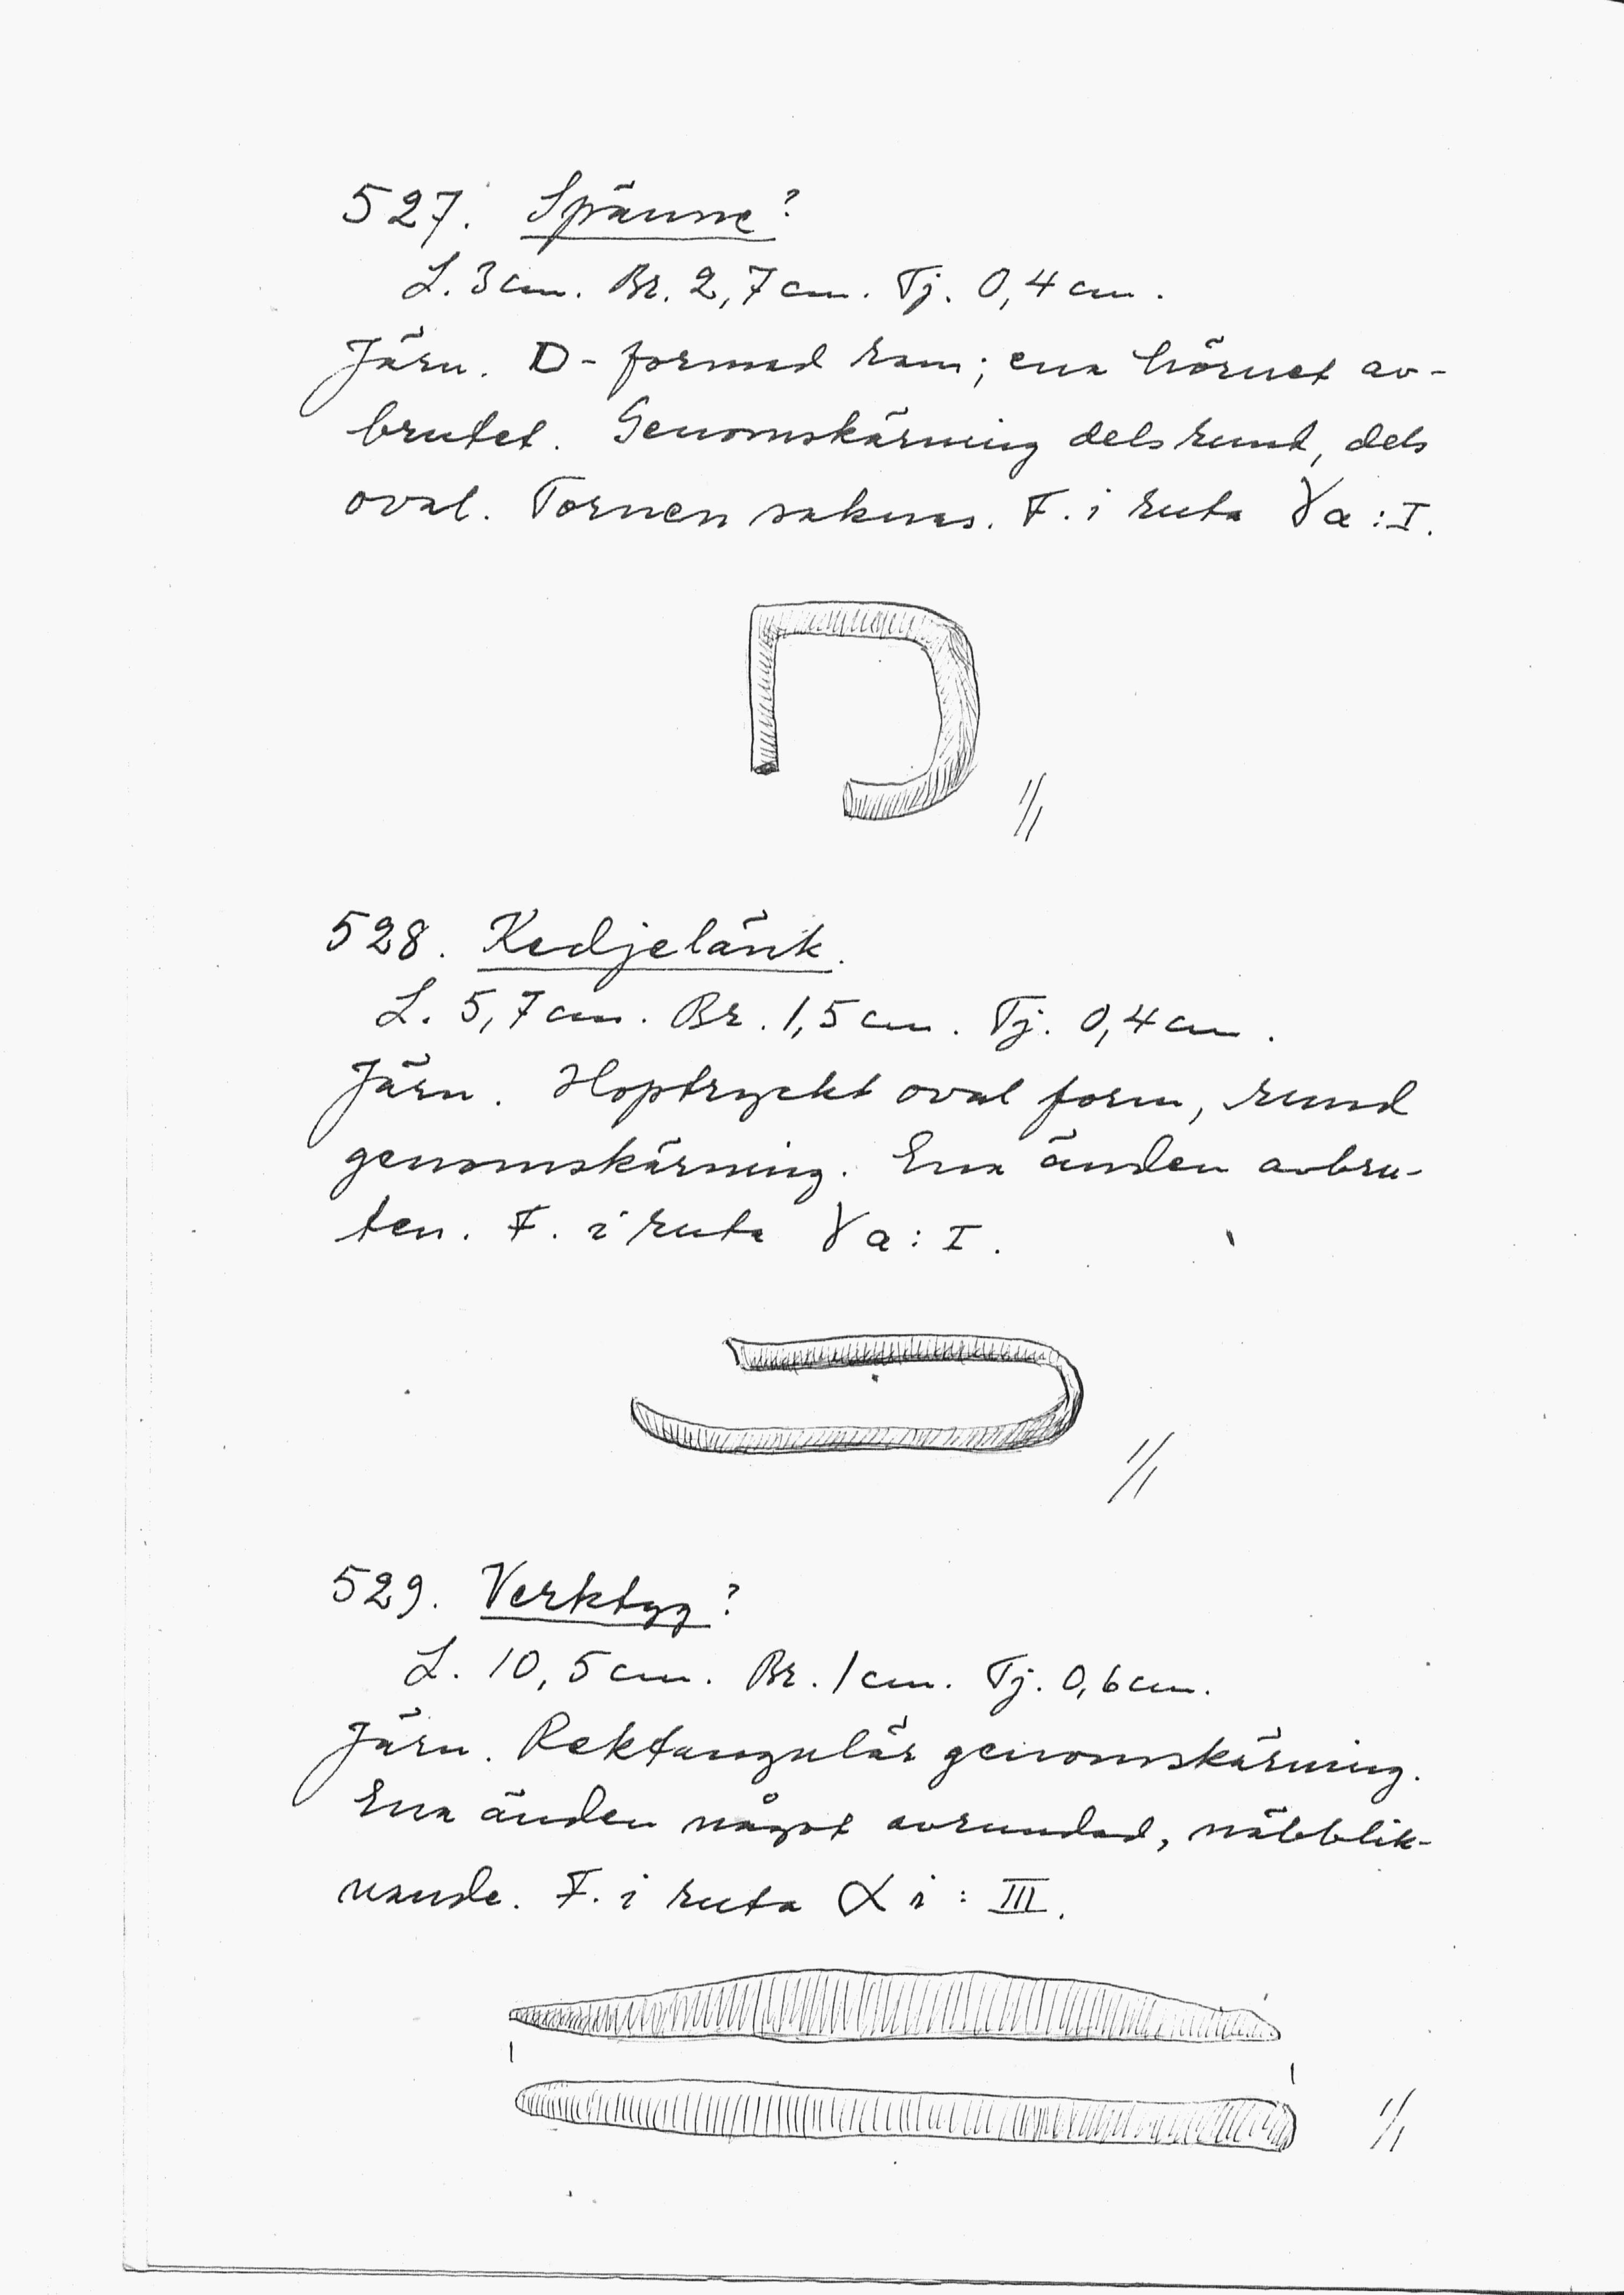 527. Spänne?
L. 3 cm. Br. 2,7 cm. Tj. 0,4 cm.
Järn. D-formad ram; ena hörnet av-
brutet. Genomskärning dels rund, dels
oval. Tornen saknas. F. i ruta γa:I.
1/1
528. Kedjelänk.
L. 5,7 cm. Br. 1,5 cm. Tj. 0,4 cm.
Järn. Hoptryckt oval form, rund
genomskärning. Ena änden avbru-
ten. F. i ruta γa:I.
1/1
529. Verktyg?
L. 10,5 cm. Br. 1 cm. Tj. 0,6 cm.
Järn. Rektangulär genomskärning.
Ena änden något avrundad, näbblik-
nande. F. i ruta αi:III.
1/1